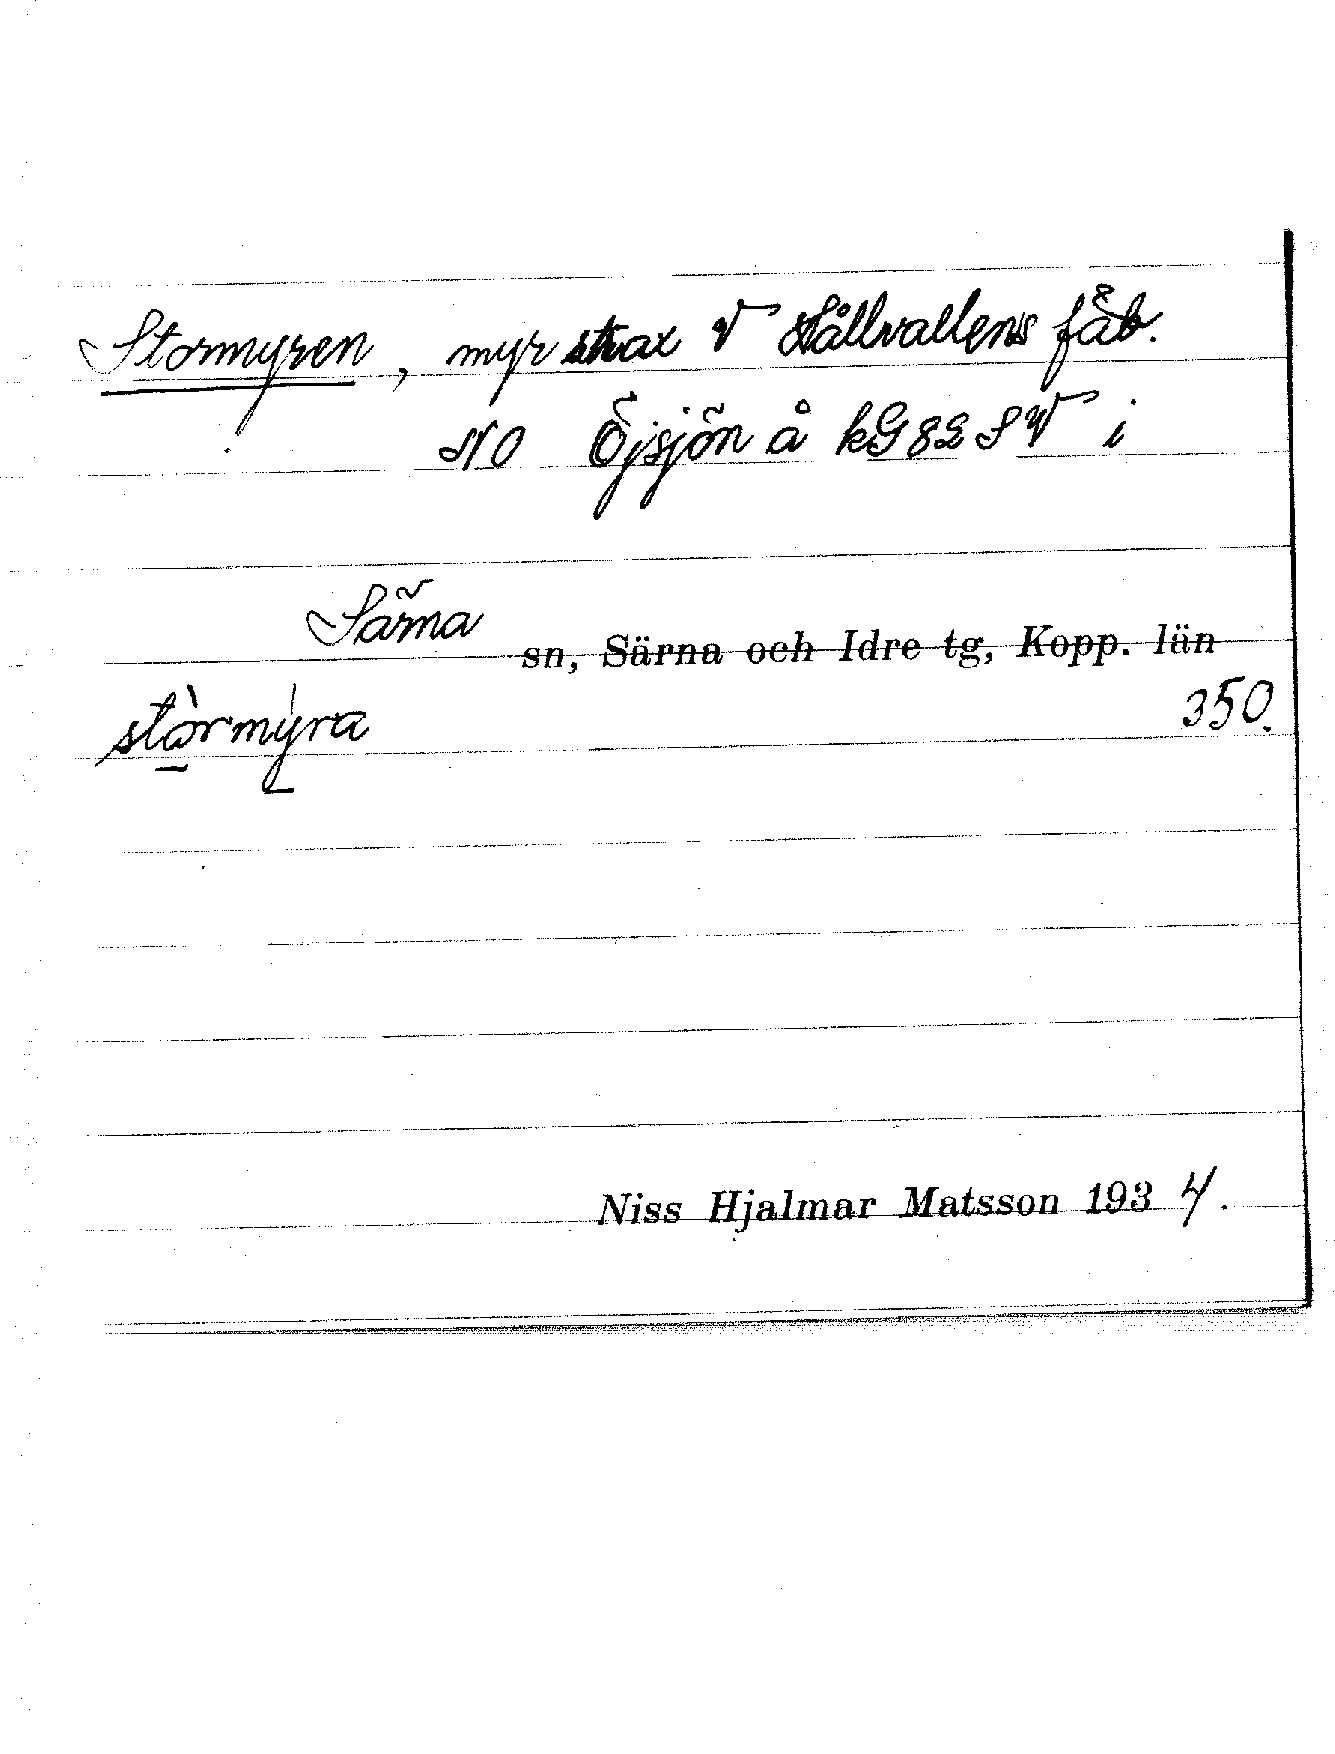 Stormyren, myr strax V Hållvallens fäb.
NO Öjsjön å kG 82 SV i
Särna sn, Särna och Idre tg, Kopp. län
stòrmýra 350.
Niss Hjalmar Matsson 1934.